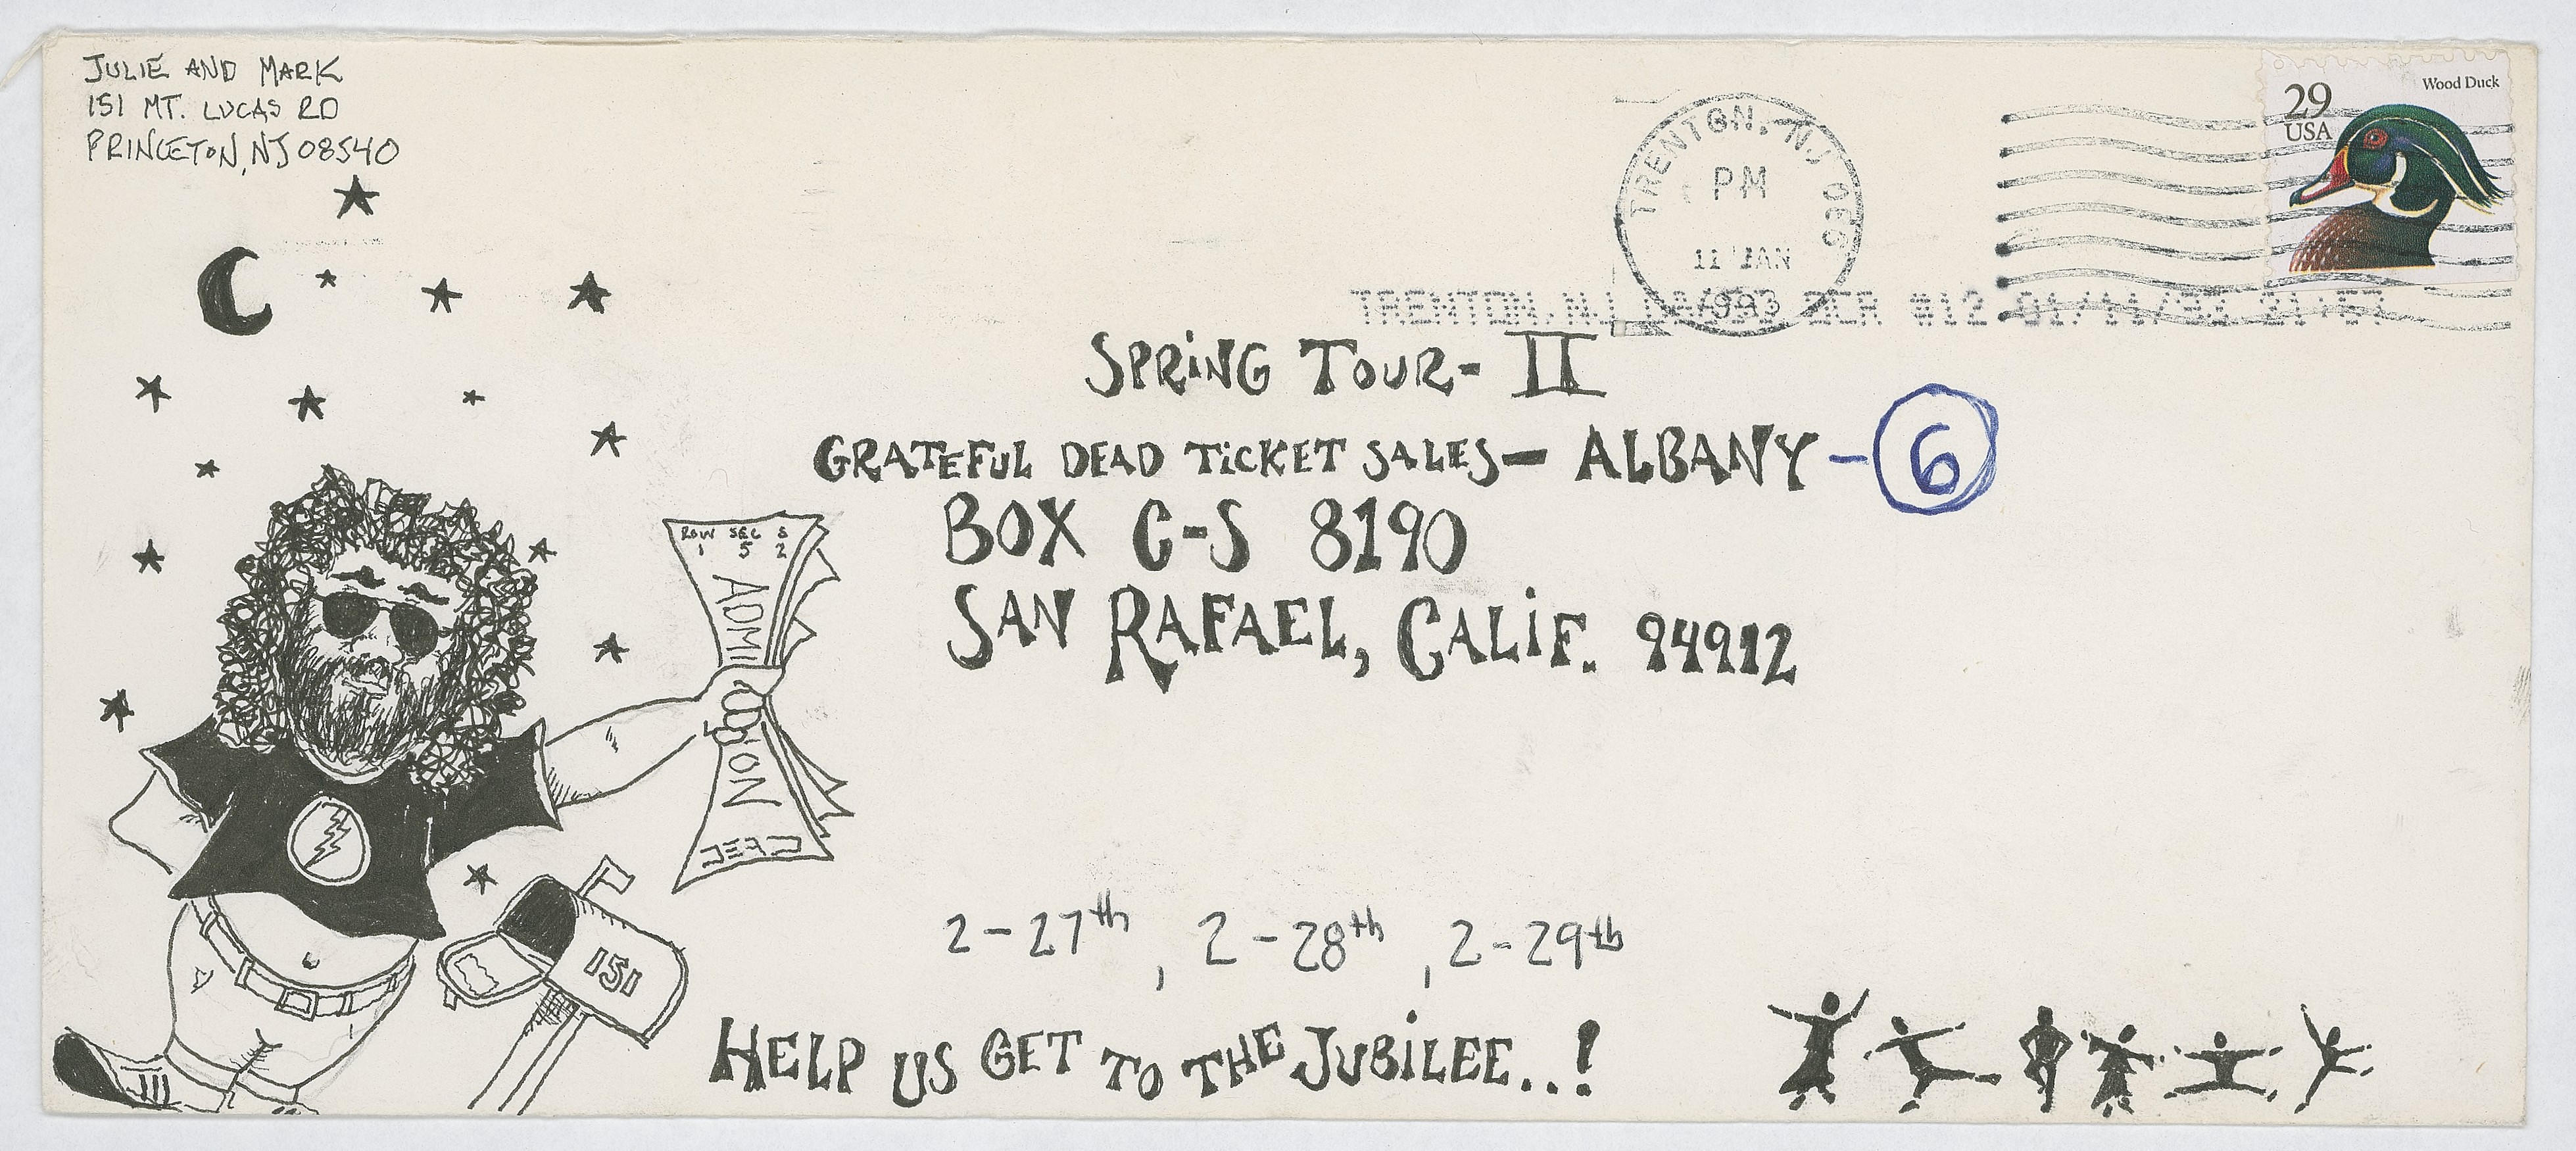 JULIE AND MARK
151 MT. LUCAS RD
PRINCETON, NJ 08540
TRENTON, NJ 086
PM
11 JAN
1993
29
USA
Wood Duck
TRENTON, NJ OCR #12 01/11/93 21:57
SPRING TOUR- II
GRATEFUL DEAD TICKET SALES— ALBANY - 6
BOX C-S 8190
SAN RAFAEL, CALIF. 94912
ROW SEC S
1 5 2
ADMI
ON
151
2-27th, 2-28th, 2-29th
HELP US GET TO THE JUBILEE..!